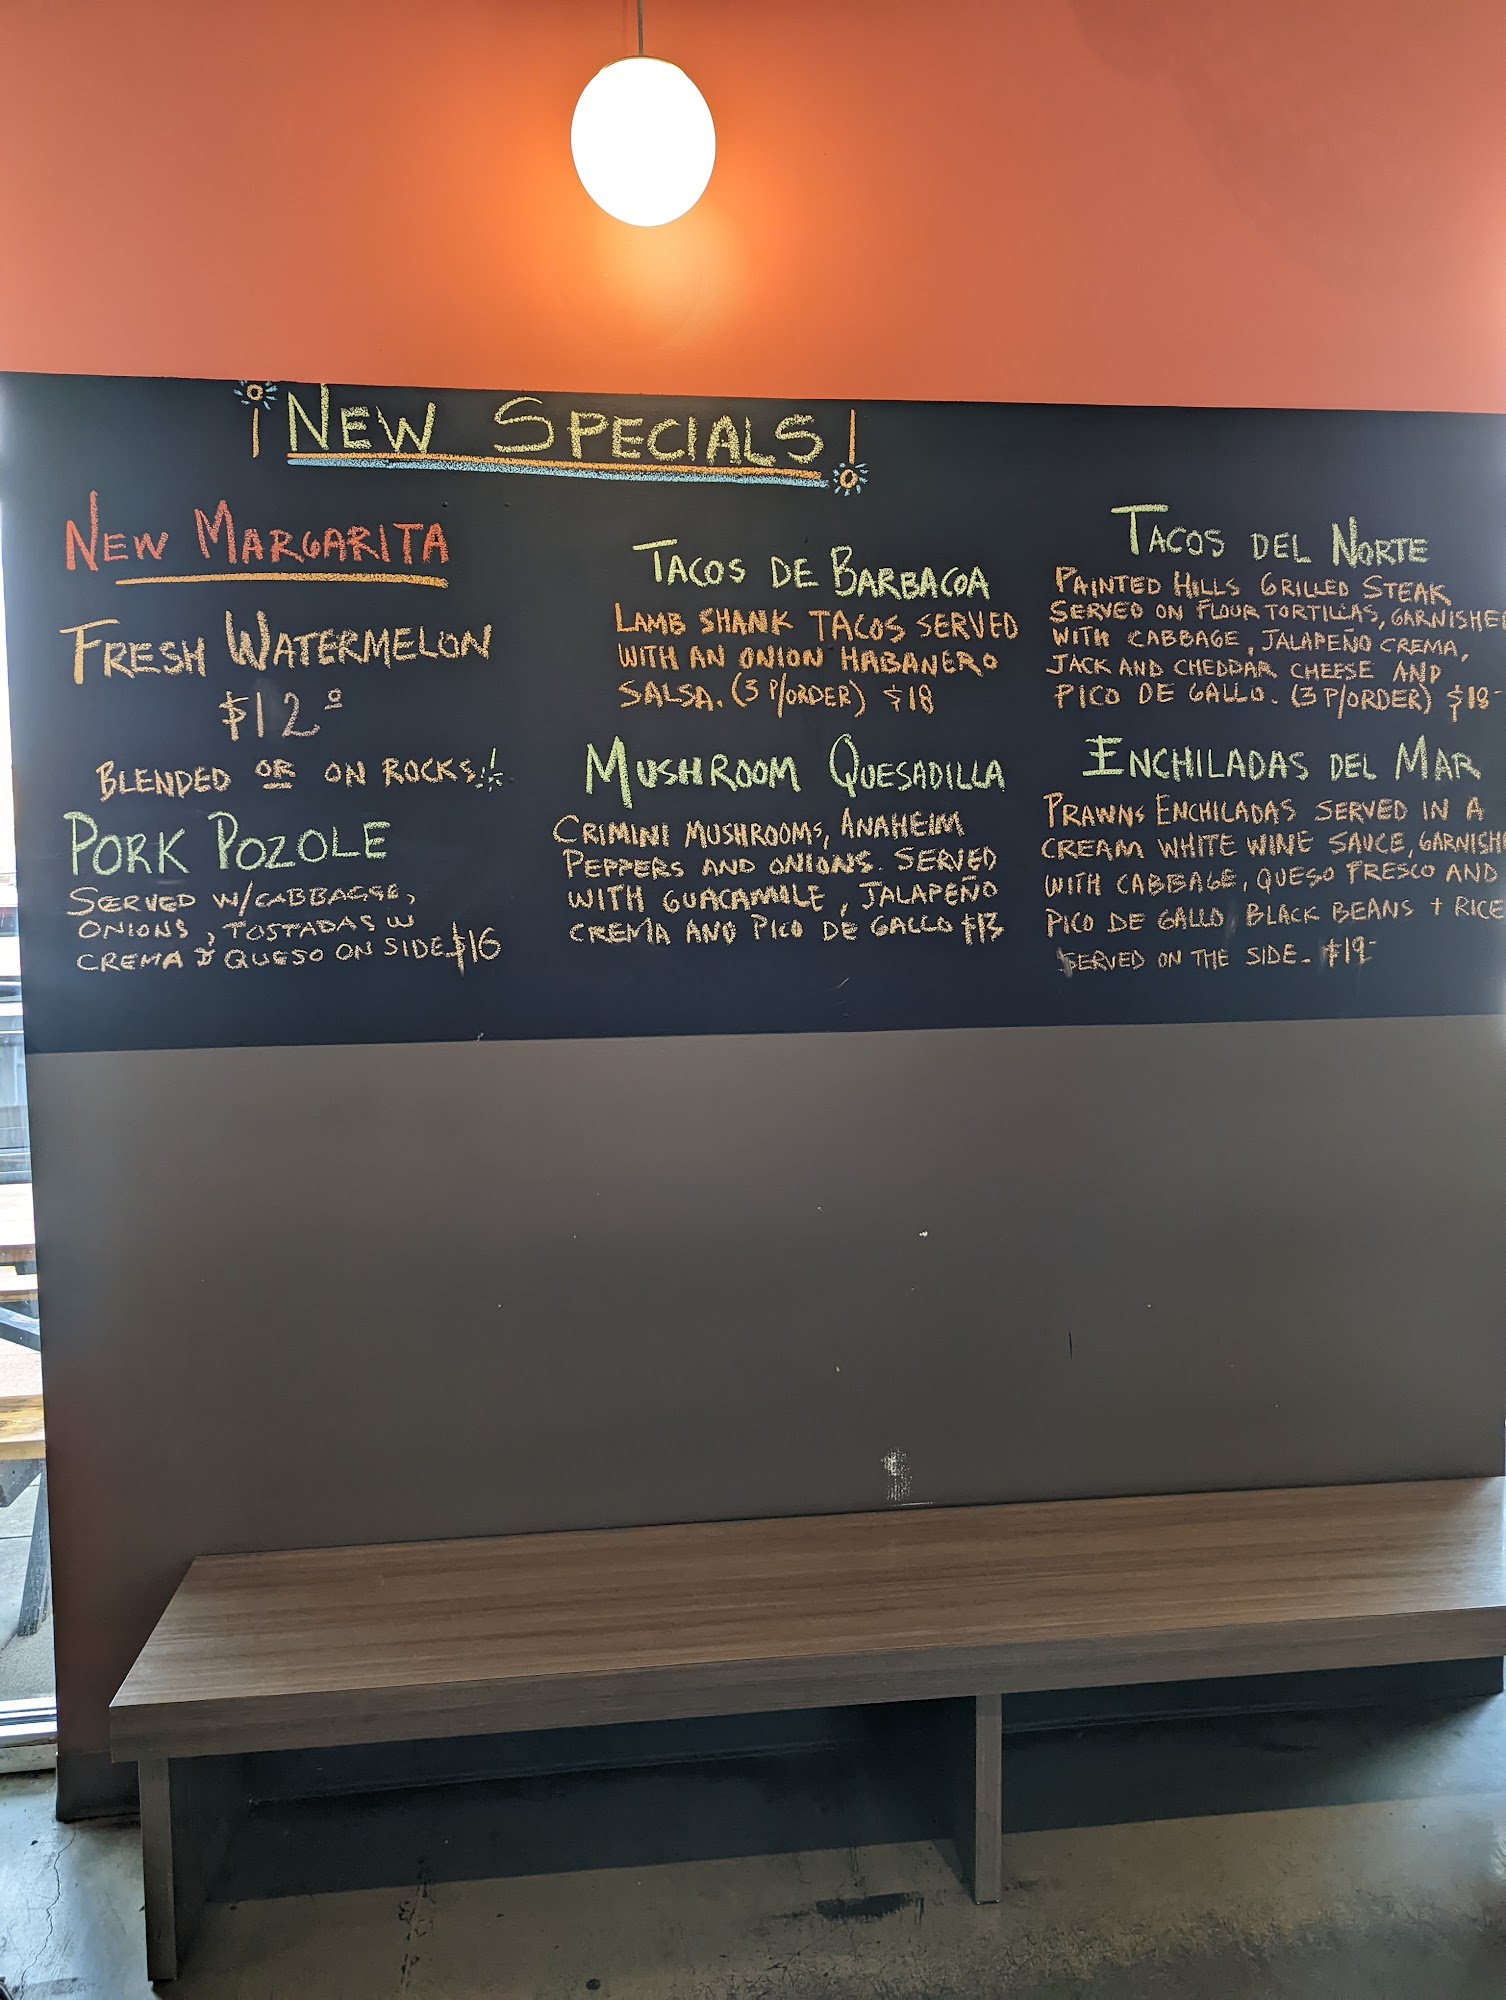 ¡NEW SPECIALS!
NEW MARGARITA
FRESH WATERMELON
$12º
BLENDED OR ON ROCKS!
PORK POZOLE
SERVED W/CABBAGSE,
ONIONS, TOSTADAS W
CREMA & QUESO ON SIDE $16
TACOS DE BARBACOA
LAMB SHANK TACOS SERVED
WITH AN ONION HABANERO
SALSA. (3 P/ORDER) $18
MUSHROOM QUESADILLA
CRIMINI MUSHROOMS, ANAHEIM
PEPPERS AND ONIONS. SERVED
WITH GUACAMILE, JALAPEÑO
CREMA AND PICO DE GALLO $13
TACOS DEL NORTE
PAINTED HILLS GRILLED STEAK
SERVED ON FLOUR TORTILLAS, GARNISHE
WITH CABBAGE, JALAPEÑO CREMA,
JACK AND CHEDDAR CHEESE AND
PICO DE GALLO. (3 P/ORDER) $18-
ENCHILADAS DEL MAR
PRAWNS ENCHILADAS SERVED IN A
CREAM WHITE WINE SAUCE, GARNISH
WITH CABBAGE, QUESO FRESCO AND
PICO DE GALLO BLACK BEANS + RICE
SERVED ON THE SIDE. $19-